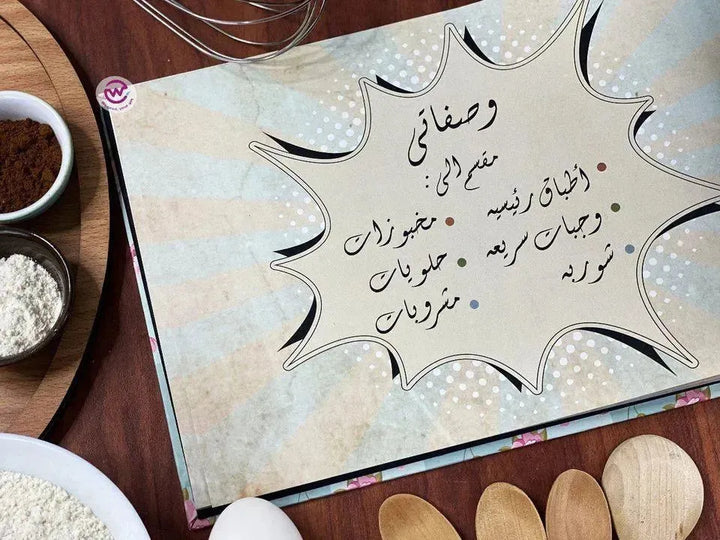 وصفاتي
مقسم الى :
أطباق رئيسيه
وجبات سريعه
شوربه
مخبوزات
حلويات
مشروبات